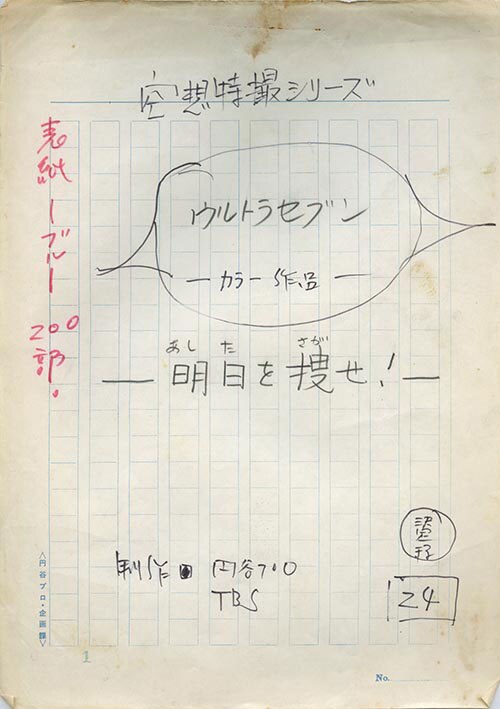 空想特撮シリーズ
ウルトラセブン
— カラー作品 —
あした さが
— 明日を捜せ! —
表紙ーブルー 200部.
制作 円谷プロ
TBS
24
〈円谷プロ・企画課〉
1
No.